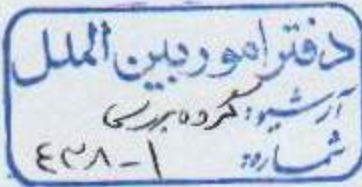 دفتر امور بین الملل
آرشیو: گروه بررسی
شماره: ۱-۴۳۸